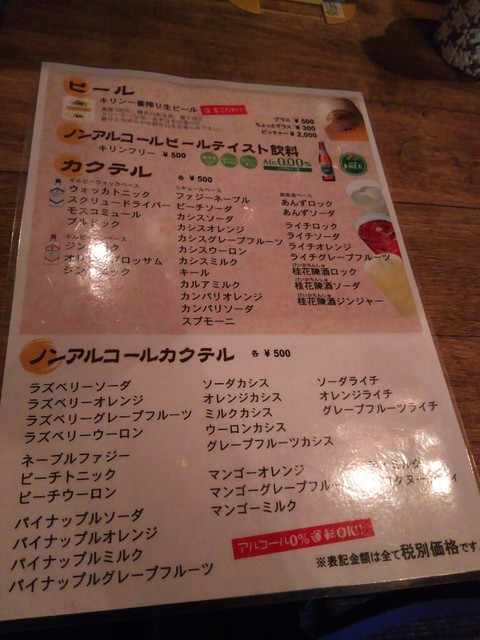 ビール
キリン一番搾り生ビール
グラス ¥500
ちょっとグラス ¥300
ピッチャー ¥2,000
ノンアルコールビールテイスト飲料
キリンフリー ¥500
Alc.0.00%
FREE
カクテル 各 ¥500
ウォッカトニック
スクリュードライバー
モスコミュール
ブルドック
オレンジブロッサム
リキュールベース
ファジーネーブル
ピーチソーダ
カシスソーダ
カシスオレンジ
カシスグレープフルーツ
カシスウーロン
カシスミルク
キール
カルアミルク
カンパリオレンジ
カンパリソーダ
スプモーニ
果実酒ベース
あんずロック
あんずソーダ
ライチロック
ライチソーダ
ライチオレンジ
ライチグレープフルーツ
桂花陳酒ロック
桂花陳酒ソーダ
桂花陳酒ジンジャー
ノンアルコールカクテル 各 ¥500
ラズベリーソーダ
ラズベリーオレンジ
ラズベリーグレープフルーツ
ラズベリーウーロン
ネーブルファジー
ピーチトニック
ピーチウーロン
パイナップルソーダ
パイナップルオレンジ
パイナップルミルク
パイナップルグレープフルーツ
ソーダカシス
オレンジカシス
ミルクカシス
ウーロンカシス
グレープフルーツカシス
マンゴーオレンジ
マンゴーグレープフルーツ
マンゴーミルク
ソーダライチ
オレンジライチ
グレープフルーツライチ
アルコール0%運転OK!!
※表記金額は全て税別価格です。